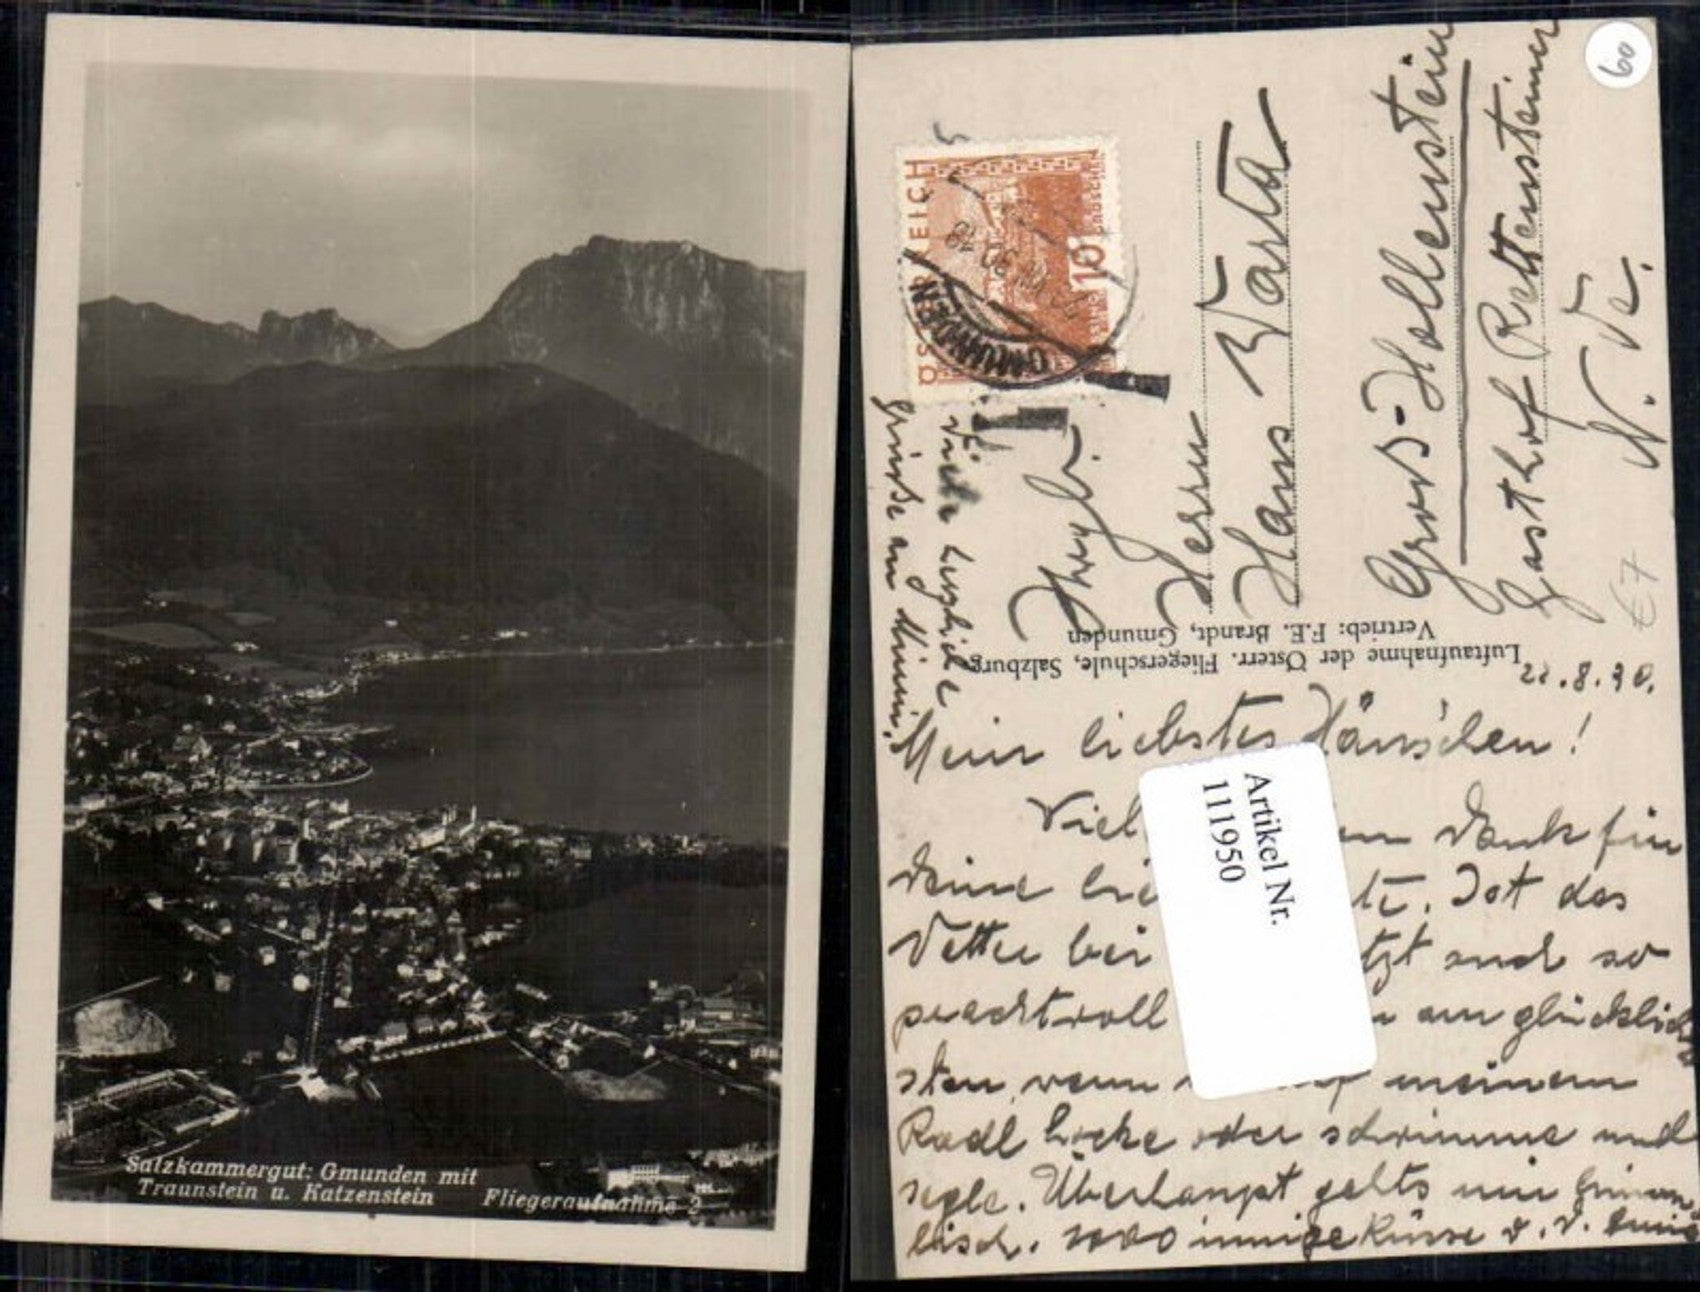 Salzkammergut: Gmunden mit
Traunstein u. Katzenstein Fliegeraufnahme 2
60
ÖSTERREICH
10
GMUNDEN
Herrn
Hans Warta
Gross-Hollenstein
Gasthof Rettensteiner
N. Oe.
€7
Luftaufnahme der Österr. Fliegerschule, Salzburg
Vertrieb: F.E. Brandt, Gmunden
Viele herzliche
Grüsse an
22.8.30.
Mein liebstes Hänschen!
Viel en Dank für
Deine lie te. Ist das
Wetter bei tzt auch so
prachtvoll am glücklich
sten, wenn meinem
Radl hocke oder schwimme und
segle. Überhaupt gehts mir himm
lisch. 1000 innige Küsse v. D.
Artikel Nr.
111950